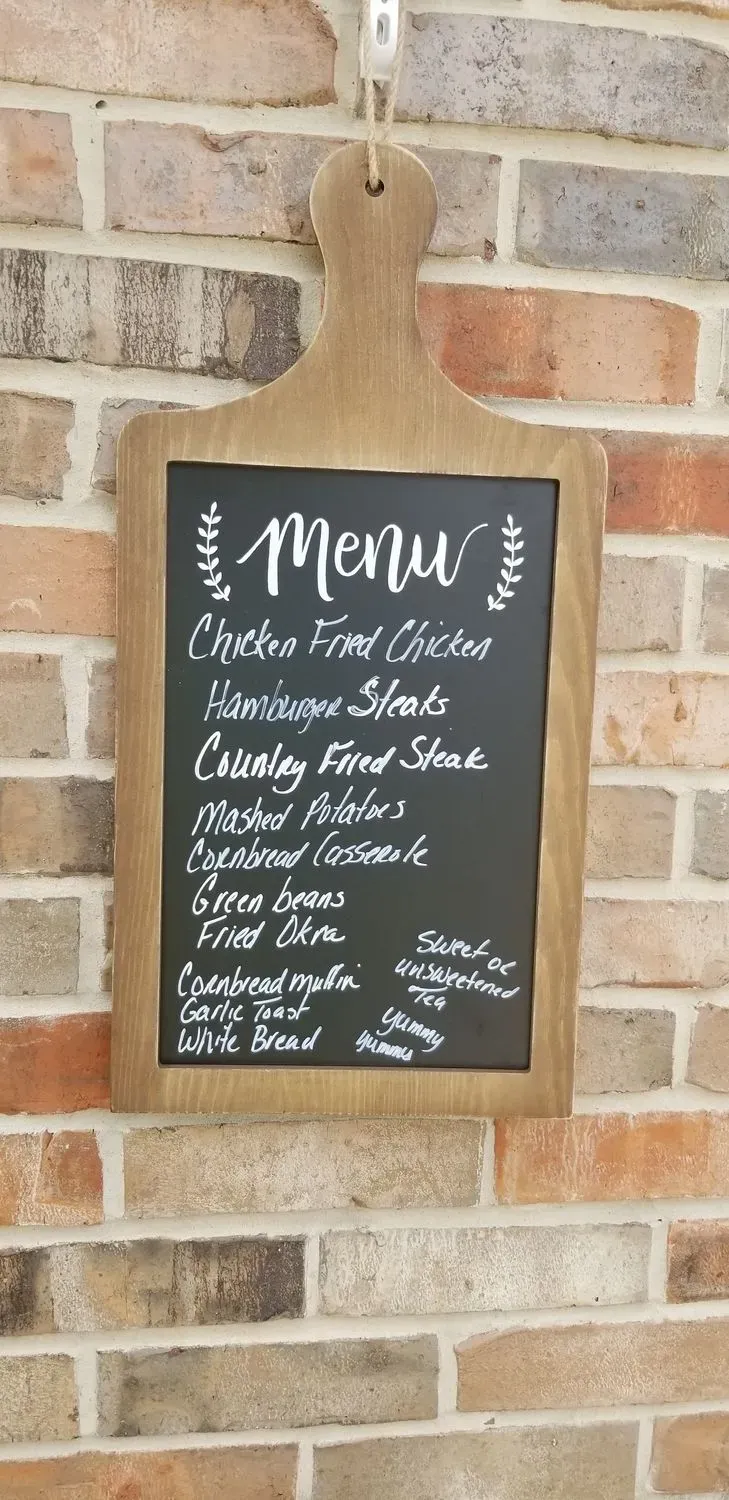 Menu
Chicken Fried Chicken
Hamburger Steaks
Country Fried Steak
Mashed Potatoes
Cornbread Casserole
Green beans
Fried Okra
Cornbread muffin
Garlic Toast
White Bread
Sweet or
unsweetened
Tea
yummy
yummy